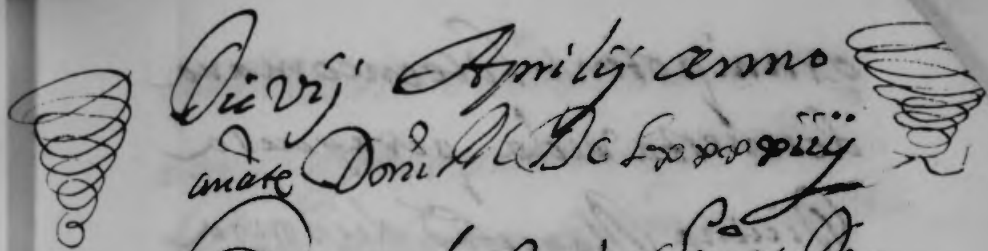 Die vij Aprilij anno
a natte Doñi M D C Lxxxxiiij